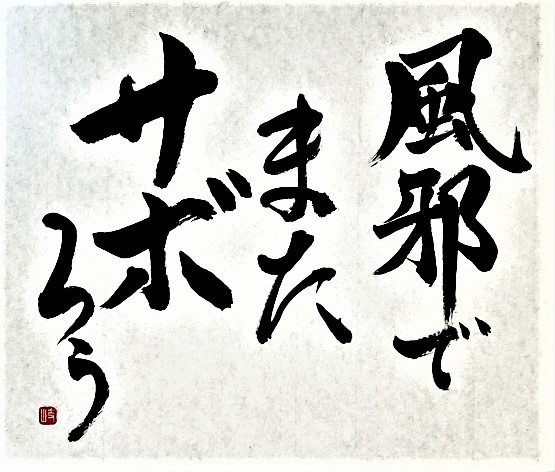 風邪で
また
サボ
ろう